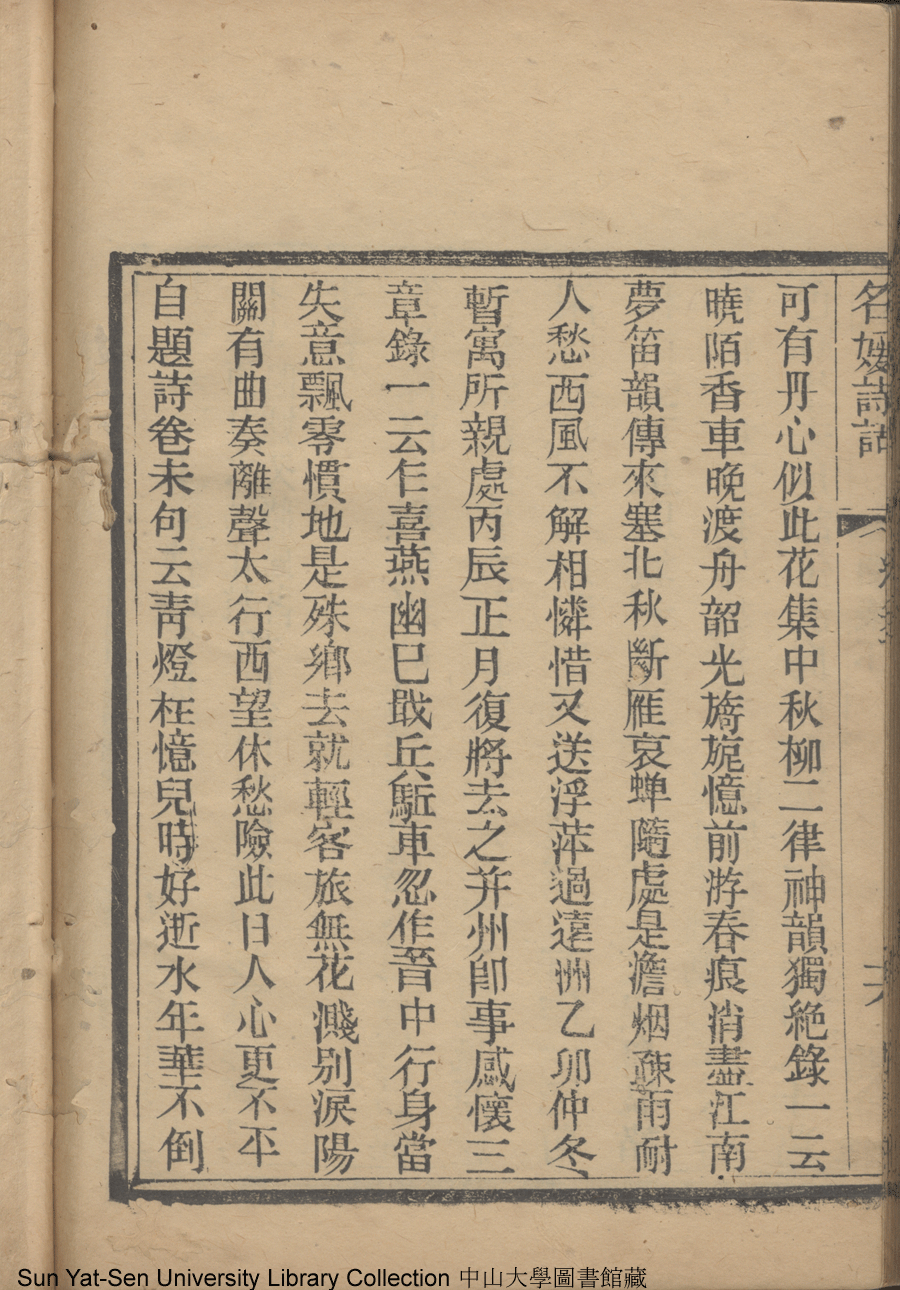 名媛詩話
可有丹心似此花集中秋柳二律神韻獨絶錄一云
曉陌香車晚渡舟韶光旖旎憶前游春痕消盡江南
夢笛韻傳來塞北秋斷雁哀蟬隨處是澹烟疎雨耐
人愁西風不解相憐惜又送浮萍過遠洲乙卯仲冬
暫寓所親處丙辰正月復將去之并州卽事感懷三
章錄一云乍喜燕幽已戢兵驅車忽作晉中行身當
失意飄零慣地是殊鄉去就輕客旅無花濺别淚陽
關有曲奏離聲太行西望休愁險此日人心更不平
自題詩卷末句云靑燈枉憶兒時好逝水年華不倒
Sun Yat-Sen University Library Collection 中山大學圖書館藏